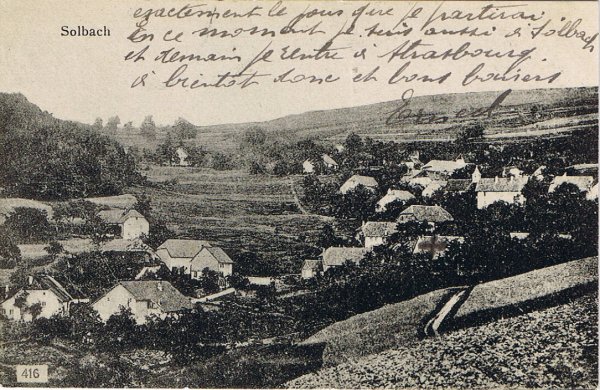 Solbach
exactement le jour que je partirai
En ce moment je suis aussi à Solbach
et demain je rentre à Strasbourg.
à bientôt donc et bons baisers
Ernest
416